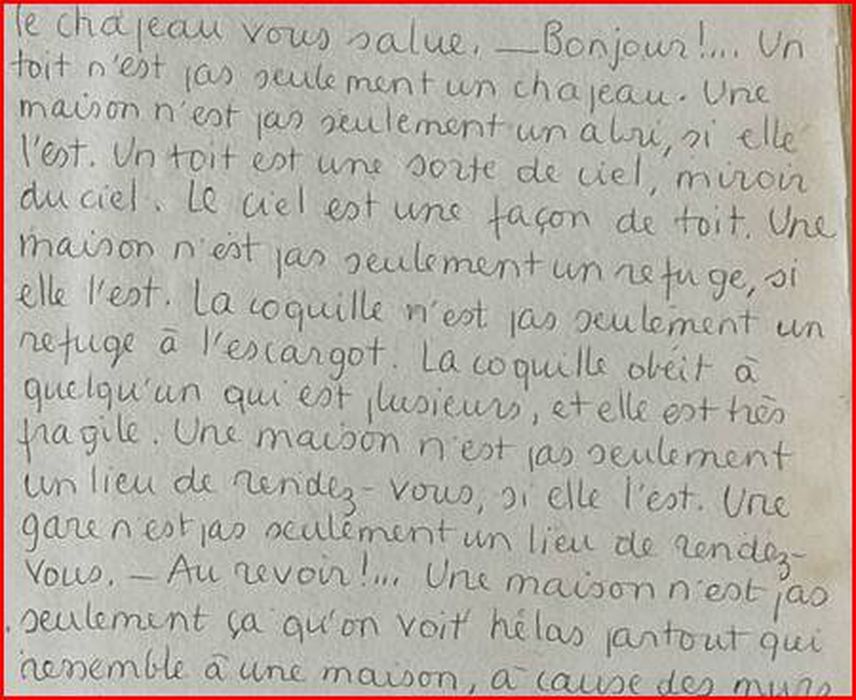 le chapeau vous salue. — Bonjour !... Un
toit n'est pas seulement un chapeau. Une
maison n'est pas seulement un abri, si elle
l'est. Un toit est une sorte de ciel, miroir
du ciel. Le ciel est une façon de toit. Une
maison n'est pas seulement un refuge, si
elle l'est. La coquille n'est pas seulement un
refuge à l'escargot. La coquille obéit à
quelqu'un qui est plusieurs, et elle est très
fragile. Une maison n'est pas seulement
un lieu de rendez-vous, si elle l'est. Une
gare n'est pas seulement un lieu de rendez-
vous. — Au revoir !... Une maison n'est pas
seulement ça qu'on voit hélas partout qui
ressemble à une maison, à cause des murs